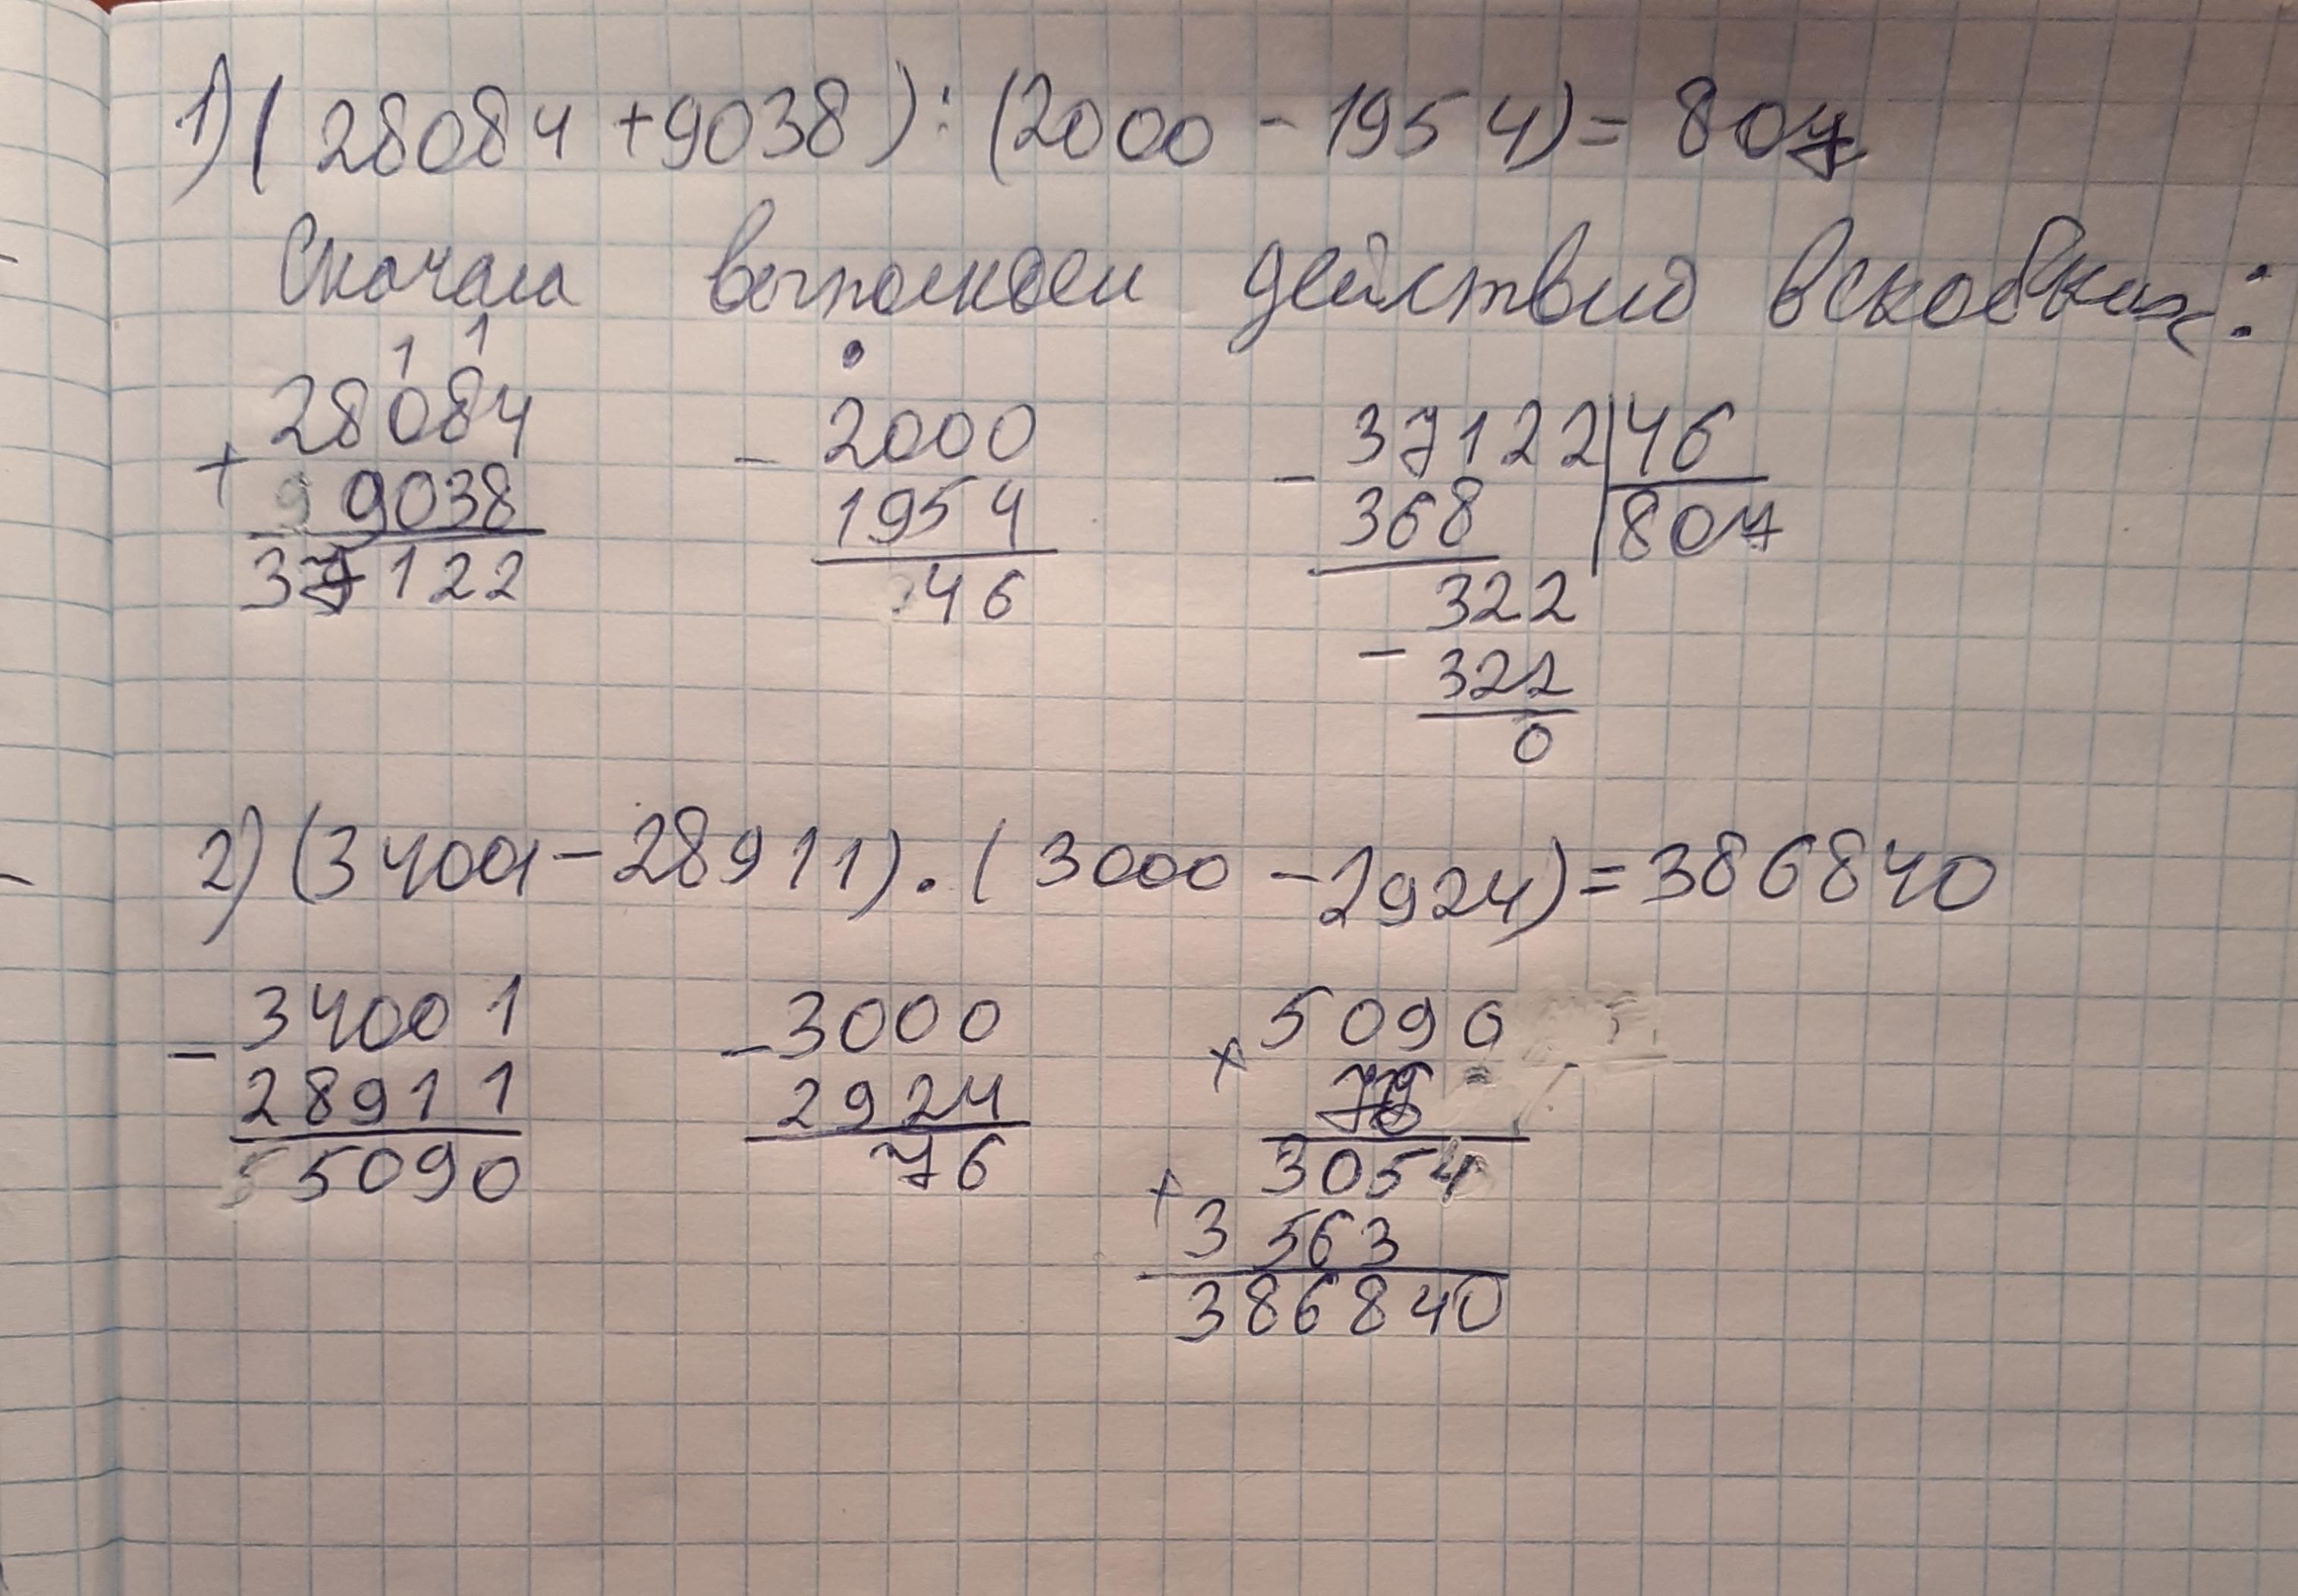 1) (28084 + 9038) : (2000 - 1954) = 807
Сначала выполняем действия в скобках:
1 1
28084
+
9038
37122
2000
-
1954
46
37122 | 46
-
368 | 807
322
-
322
0
2) (34001 - 28911) · (3000 - 2924) = 386840
34001
-
28911
5090
3000
-
2924
76
5090
×
76
3054
+
3563
386840